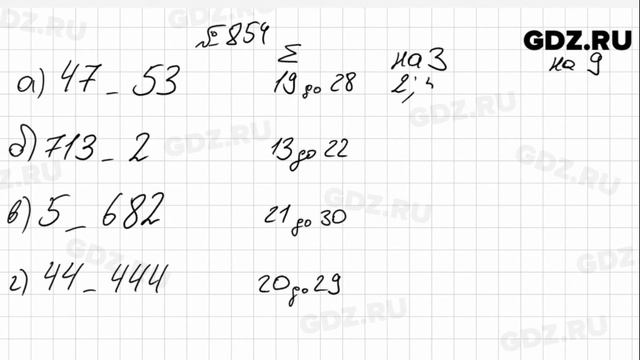 № 854
GDZ.RU
Σ на 3 на 9
а) 47 _ 53 19 до 28 2; 4
б) 713 _ 2 13 до 22
в) 5 _ 682 21 до 30
г) 44 _ 444 20 до 29